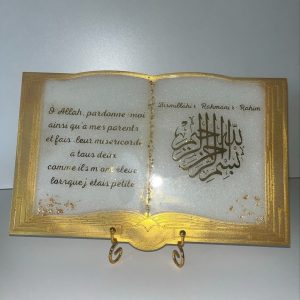 Ô Allah, pardonne-moi
ainsi qu'à mes parents
et fais leur miséricorde
à tous deux
comme ils m'ont élevé
lorsque j'étais petite
Bismillahi r-Rahmani r-Rahim
بسم الله الرحمن الرحيم